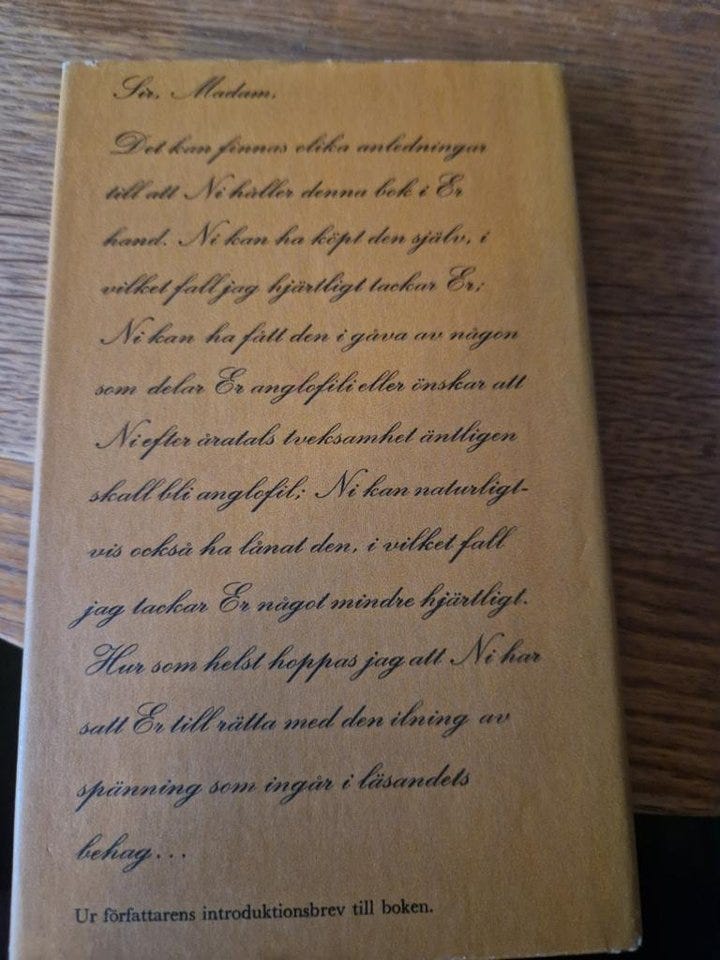 Sir, Madam,
Det kan finnas olika anledningar
till att Ni håller denna bok i Er
hand. Ni kan ha köpt den själv, i
vilket fall jag hjärtligt tackar Er;
Ni kan ha fått den i gåva av någon
som delar Er anglofili eller önskar att
Ni efter åratals tveksamhet äntligen
skall bli anglofil; Ni kan naturligt-
vis också ha lånat den, i vilket fall
jag tackar Er något mindre hjärtligt.
Hur som helst hoppas jag att Ni har
satt Er till rätta med den ilning av
spänning som ingår i läsandets
behag...
Ur författarens introduktionsbrev till boken.